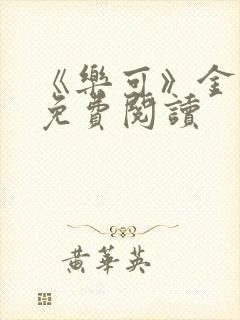 《樂可》全
免費閱讀
黃華英